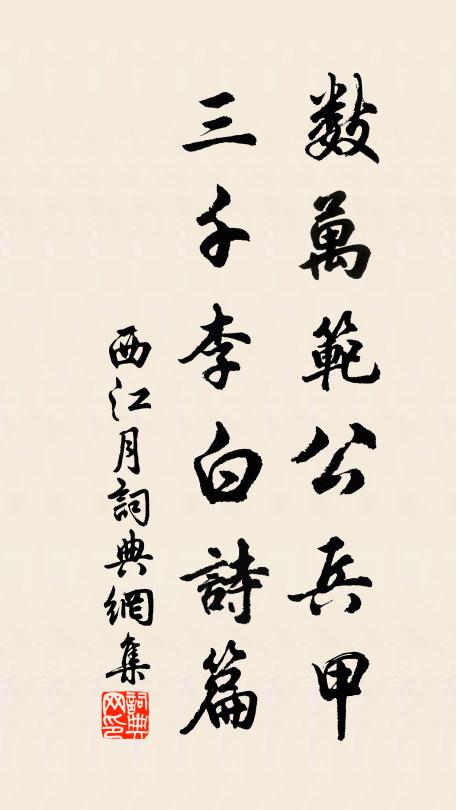 数萬範公兵甲
三千李白詩篇
西江月詞典網集
詞典网印